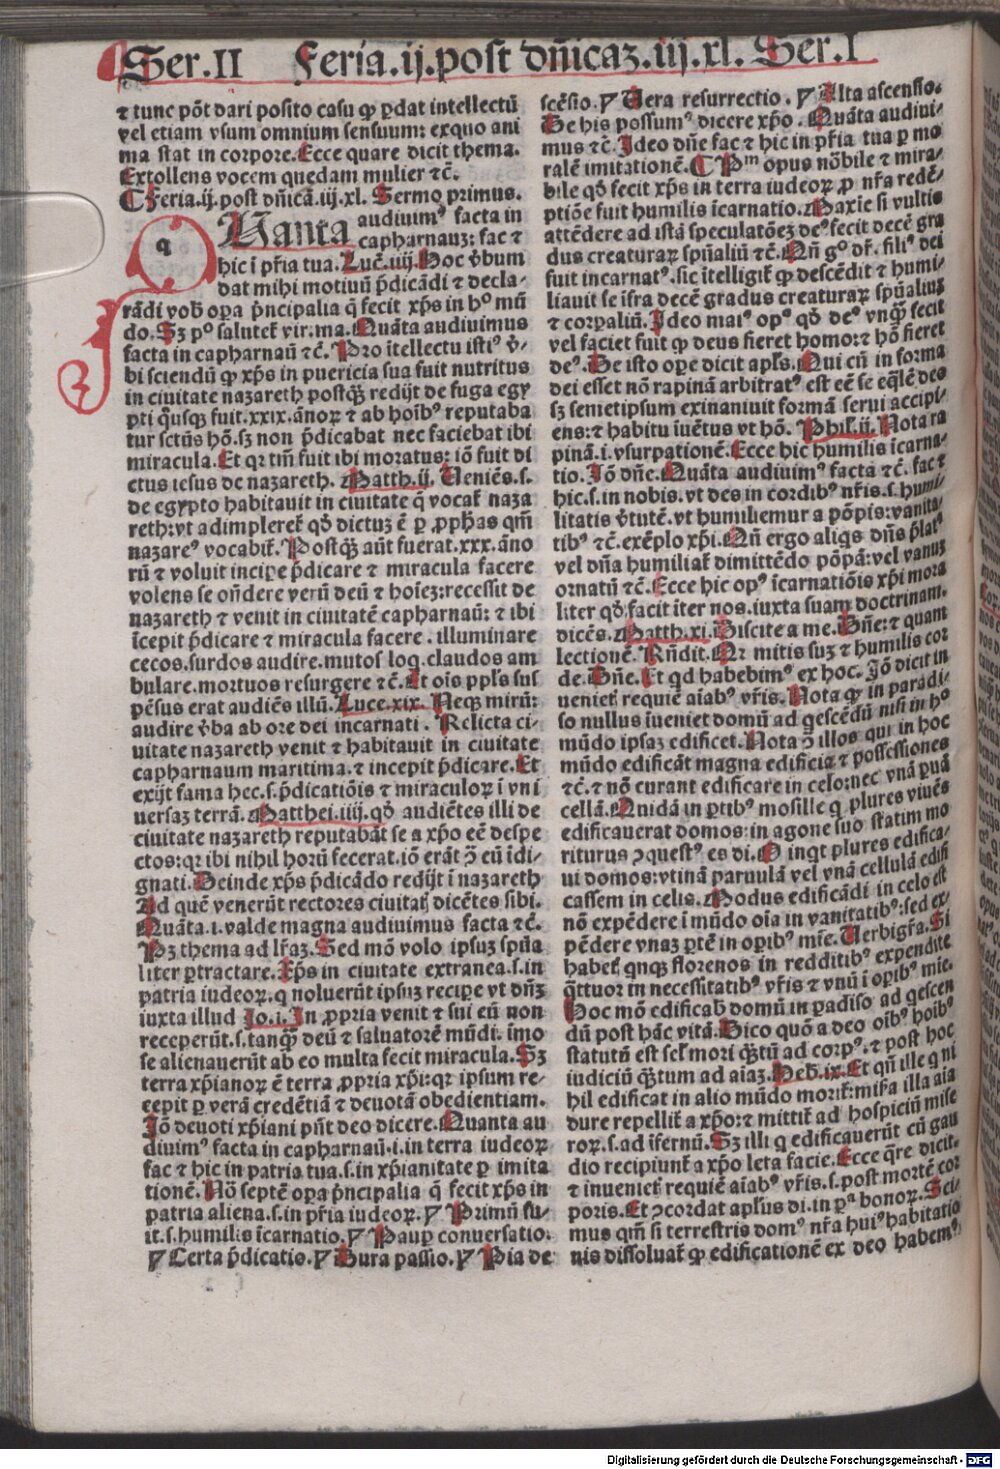 Ser.II Feria.ij.post dn̄icaꝫ.iij.xl. Ser.I
⁊ tunc pōt dari posito casu ꝙ ꝑdat intellectū
vel etiam vsum omnium sensuum: exquo ani
ma stat in corpore.Ecce quare dicit thema.
Extollens vocem quedam mulier ⁊c̄.
¶ Feria.ij.post dnicā.iij.xl. Sermo primus.
QUanta audiuimꝰ facta in
capharnauꝫ: fac ⁊
hic ī pr̄ia tua.Luc̄.iiij.Hoc v̄bum
dat mihi motiuū p̄dicādi ⁊ decla-
rādi vob̄ oꝑa p̄ncipalia q̄ fecit xp̄s in hͦ mū
do.Sꝫ pͦ salutet̄ vir.ma.Quāta audiuimus
facta in capharnaū ⁊c̄.Pro ītellectu istiꝰ v̄-
bi sciendū ꝙ xp̄s in puericia sua fuit nutritus
in ciuitate nazareth postqꝫ̄ redijt de fuga egy
pti q̄usqꝫ fuit.xxix.ānoꝝ ⁊ ab hoībꝰ reputaba
tur sctūs hō.sꝫ non p̄dicabat nec faciebat ibi
miracula.Et qꝛ tm̄ fuit ibi moratus: iō fuit di
ctus iesus de nazareth. Matth.ij. Ueniēs.s.
de egypto habitauit in ciuitate q̄ vocat̄ naza
reth: vt adimpleret̄ qd̄ dictuꝫ ē ꝑ ꝓphas qm̄
nazareꝰ vocabit̄.Postqꝫ̄ aūt fuerat.xxx.āno
rū ⁊ voluit incipe p̄dicare ⁊ miracula facere
volens se on̄dere verū deū ⁊ hoīeꝫ: recessit de
nazareth ⁊ venit in ciuitatē capharnaū: ⁊ ibi
īcepit p̄dicare ⁊ miracula facere . illuminare
cecos.surdos audire.mutos loq̄.claudos am
bulare.mortuos resurgere ⁊c̄.Et oīs ppl̄s sus
pēsus erat audiēs illū.Luce.xix. Neqꝫ mirū:
audire v̄ba ab ore dei incarnati . Relicta ci-
uitate nazareth venit ⁊ habitauit in ciuitate
capharnaum maritima.⁊ incepit p̄dicare.Et
exijt fama hec.s.p̄dicatiōis ⁊ miraculoꝝ ī vni
uersaꝫ terrā.Matthei.iiij.qd̄ audiētes illi de
ciuitate nazareth reputabāt se a xp̄o eē despe
ctos: qꝛ ibi nihil horū fecerat.iō erāt ꝯ̄ eū īdi-
gnati.Deinde xp̄s p̄dicādo redijt ī nazareth
Ad quē venerūt rectores ciuitatꝭ dicētes sibi.
Quāta.i.valde magna audiuimus facta ⁊c̄.
Pꝫ thema ad lr̄aꝫ.Sed mō volo ipsuꝫ spūa
liter ꝑtractare.Xp̄s in ciuitate extranea.s.in
patria iudeoꝝ.q̄ noluerūt ipsuꝫ recipe vt dn̄ꝫ
iuxta illud Jo.i.In ꝓpria venit ⁊ sui eū non
receperūt.s.tanqꝫ̄ deū ⁊ saluatorē mūdi. īmo
se alienauerūt ab eo multa fecit miracula.Sꝫ
terra xp̄ianoꝝ ē terra ꝓpria xp̄i: qꝛ ipsum re-
cepit ꝑ verā credētiā ⁊ deuotā obedientiam.
Jō deuoti xp̄iani pn̄t deo dicere.Quanta au
diuimꝰ facta in capharnaū.i.in terra iudeoꝝ
fac ⁊ hic in patria tua.s.in xp̄ianitate ꝑ imita
tionē.Nō septē oꝑa p̄ncipalia q̄ fecit xp̄s in
patria aliena.s.in pr̄ia iudeoꝝ.¶ Primū fu-
it.s.humilis īcarnatio.¶ Pauꝑ conuersatio.
¶ Certa p̄dicatio.¶ Dura passio.¶ Pia de
scēsio.¶ Uera resurrectio.¶ Alta ascensio.
De his possumꝰ dicere xp̄o.Quāta audiui-
mus ⁊c̄.Jdeo dn̄e fac ⁊ hic in pr̄ia tua ꝑ mo
ralē imitationē.¶ Pᵐ opus nōbile ⁊ mira-
bile qd̄ fecit xp̄s in terra iudeoꝝ ꝓ nr̄a redē-
ptiōe fuit humilis īcarnatio.Maxīe si vultis
attēdere ad istā speculatōeꝫ deꝰ fecit decē gra
dus creaturaꝝ spūaliū ⁊c̄.Qn̄ gͦ dr̄.filiꝰ dei
fuit incarnatꝰ.sic ītelligit̄ ꝙ descēdit ⁊ humi-
liauit se īfra decē gradus creaturaꝝ spūaliuꝫ
⁊ corꝑaliū.Jdeo maiꝰ opꝰ qd̄ deꝰ vnqꝫ̄ fecit
vel faciet fuit ꝙ deus fieret homo: ⁊ hō fieret
deꝰ.De isto oꝑe dicit apl̄s.Qui cū in forma
dei esset nō rapinā arbitratꝰ est eē se eq̄lē deo
sꝫ semetipsum exinaniuit formā serui accipi-
ens: ⁊ habitu īuētus vt hō. Phil.ij.Nota ra
pinā.i.vsurpationē.Ecce hic humilis īcarna-
tio.Jō dn̄e.Quāta audiuimꝰ facta ⁊c̄. fac ⁊
hic.s.in nobis.vt des in cordibꝰ nr̄is.s.humi-
litatis v̄tutē.vt humiliemur a pōpis: vanita-
tibꝰ ⁊c̄.exēplo xp̄i.Qn̄ ergo aliqs dn̄s p̄latꝰ
vel dn̄a humiliat̄ dimittēdo pōpā: vel vanuꝫ
ornatū ⁊c̄.Ecce hic opꝰ īcarnatiōis xp̄i mora
liter qd̄ facit īter nos.iuxta suam doctrinam.
dicēs.Matth.xi.Discite a me.Dn̄e: ⁊ quam
lectionē.Rn̄dit.Qꝛ mitis suꝫ ⁊ humilis cor
de.Dn̄e.Et qd habebimꝰ ex hoc.Jō dicit in
uenietꝭ requiē aīabꝰ vr̄is.Nota ꝙ in paradi-
so nullus īueniet domū ad q̄escēdū nisi in hͦ
mūdo ipsaꝫ edificet.Nota ꝯ̄ illos qui in hoc
mūdo edificāt magna edificia ⁊ possessiones
⁊c̄.⁊ nō curant edificare in celo: nec vnā ꝑuā
cellā.Quidā in ꝑtibꝰ mosille q̄ plures viuēs
edificauerat domos: in agone suo statim mo
riturus ꝯquestꝰ es di.O inqt plures edifica-
ui domos: vtinā paruulā vel vnā cellulā edifi
cassem in celis.Modus edificādi in celo est
nō expēdere ī mūdo oīa in vanitatibꝰ: sed ex-
pēdere vnaꝫ ꝑtē in oꝑibꝰ mīe.Uerbigr̄a.Si
habetꝭ qnqꝫ florenos in redditibꝰ expendite
q̄ttuor in necessitatibꝰ vr̄is ⁊ vnū ī oꝑibꝰ mīe.
Hoc mō edificab̄ domū in ꝑadiso ad q̄escen
dū post hāc vitā.Dico quō a deo oībꝰ hoībꝰ
statutū est sel̄ mori qꝫ̄tū ad corpꝰ.⁊ post hoc
iudiciū qꝫ̄tum ad aīaꝫ.Heb̄.ix.Et qn̄ ille q̄ ni
hil edificat in alio mūdo morit̄: misa illa aīa
dure repellit̄ a xp̄o: ⁊ mittit̄ ad hospiciū mise
roꝝ.s.ad īfernū.Sꝫ illi q̄ edificauerūt cū gau
dio recipiunt̄ a xp̄o leta facie.Ecce q̄re dicit.
⁊ inuenietꝭ requiē aīabꝰ vr̄is.s.post mortē cor
poris.Et ꝯcordat apl̄us di.in pᵃ bonoꝝ.Sci-
mus qm̄ si terrestris domꝰ nr̄a huiꝰ habitatio
nis dissoluat̄ ꝙ edificationē ex deo habemꝰ
Digitalisierung gefördert durch die Deutsche Forschungsgemeinschaft - DFG